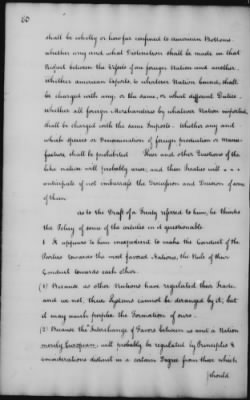 60
shall be wholly or how far confined to American Bottoms.
whether any and what Distinction shall be made in that
Respect between the Vessels of one foreign Nation and another.
whether American Exports, to whatever Nation bound, shall
be charged with any, or the same, or what different Duties.
whether all foreign Merchandizes by whatever Nation imported,
shall be charged with the same Imposts. Whether any and
which species or Denomination of foreign production or Manu-
facture shall be prohibited These and other Questions of the
like nature will probably arise, and these Treaties will
anticipate if not embarrass the Discussion and Decision of some
of them.
As to the Draft of a Treaty referred to him, he thinks
the Policy of some of the articles in it questionable
1 It appears to him inexpedient to make the Conduct of the
Parties towards the most favored Nations, the Rule of their
Conduct towards each other.
(1) Because as other Nations have regulated their Trade,
and we not, their Systems cannot be deranged by it; but
it may much perplex the Formation of ours.
(2) Because the Interchange of Favors between us and a Nation
merely European will probably be regulated by Principles &
considerations distinct in a certain Degree from those which
should